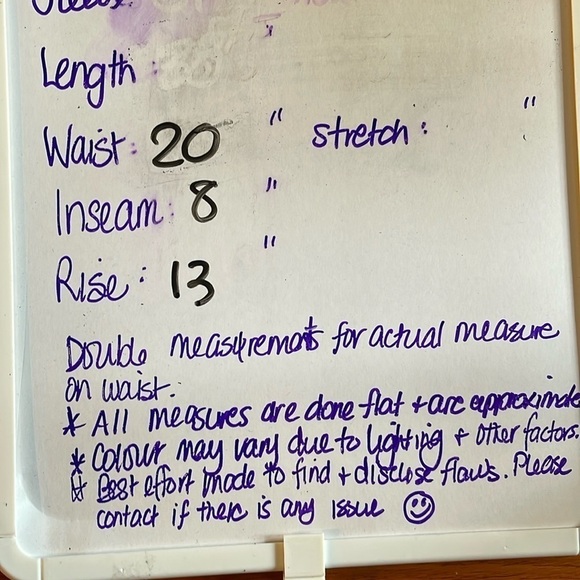 Length:
Waist: 20 " Stretch: "
Inseam: 8 "
Rise: 13 "
Double measurements for actual measure
on waist.
* All measures are done flat + are approximate
* Colour may vary due to lighting + other factors.
* Best effort made to find + disclose flaws. Please
contact if there is any issue ☺